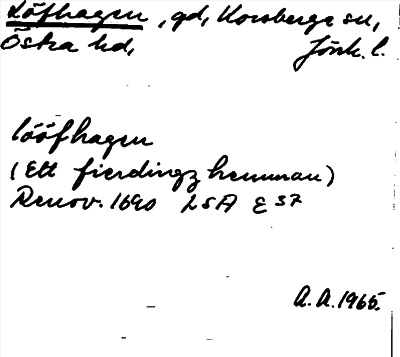 Löfhagen, gd, Korsberga sn,
Östra hd, Jönk. l.
lööfhagen
(Ett fierdingz hemman)
Renov. 1690 LSA E 37
A.A. 1965.